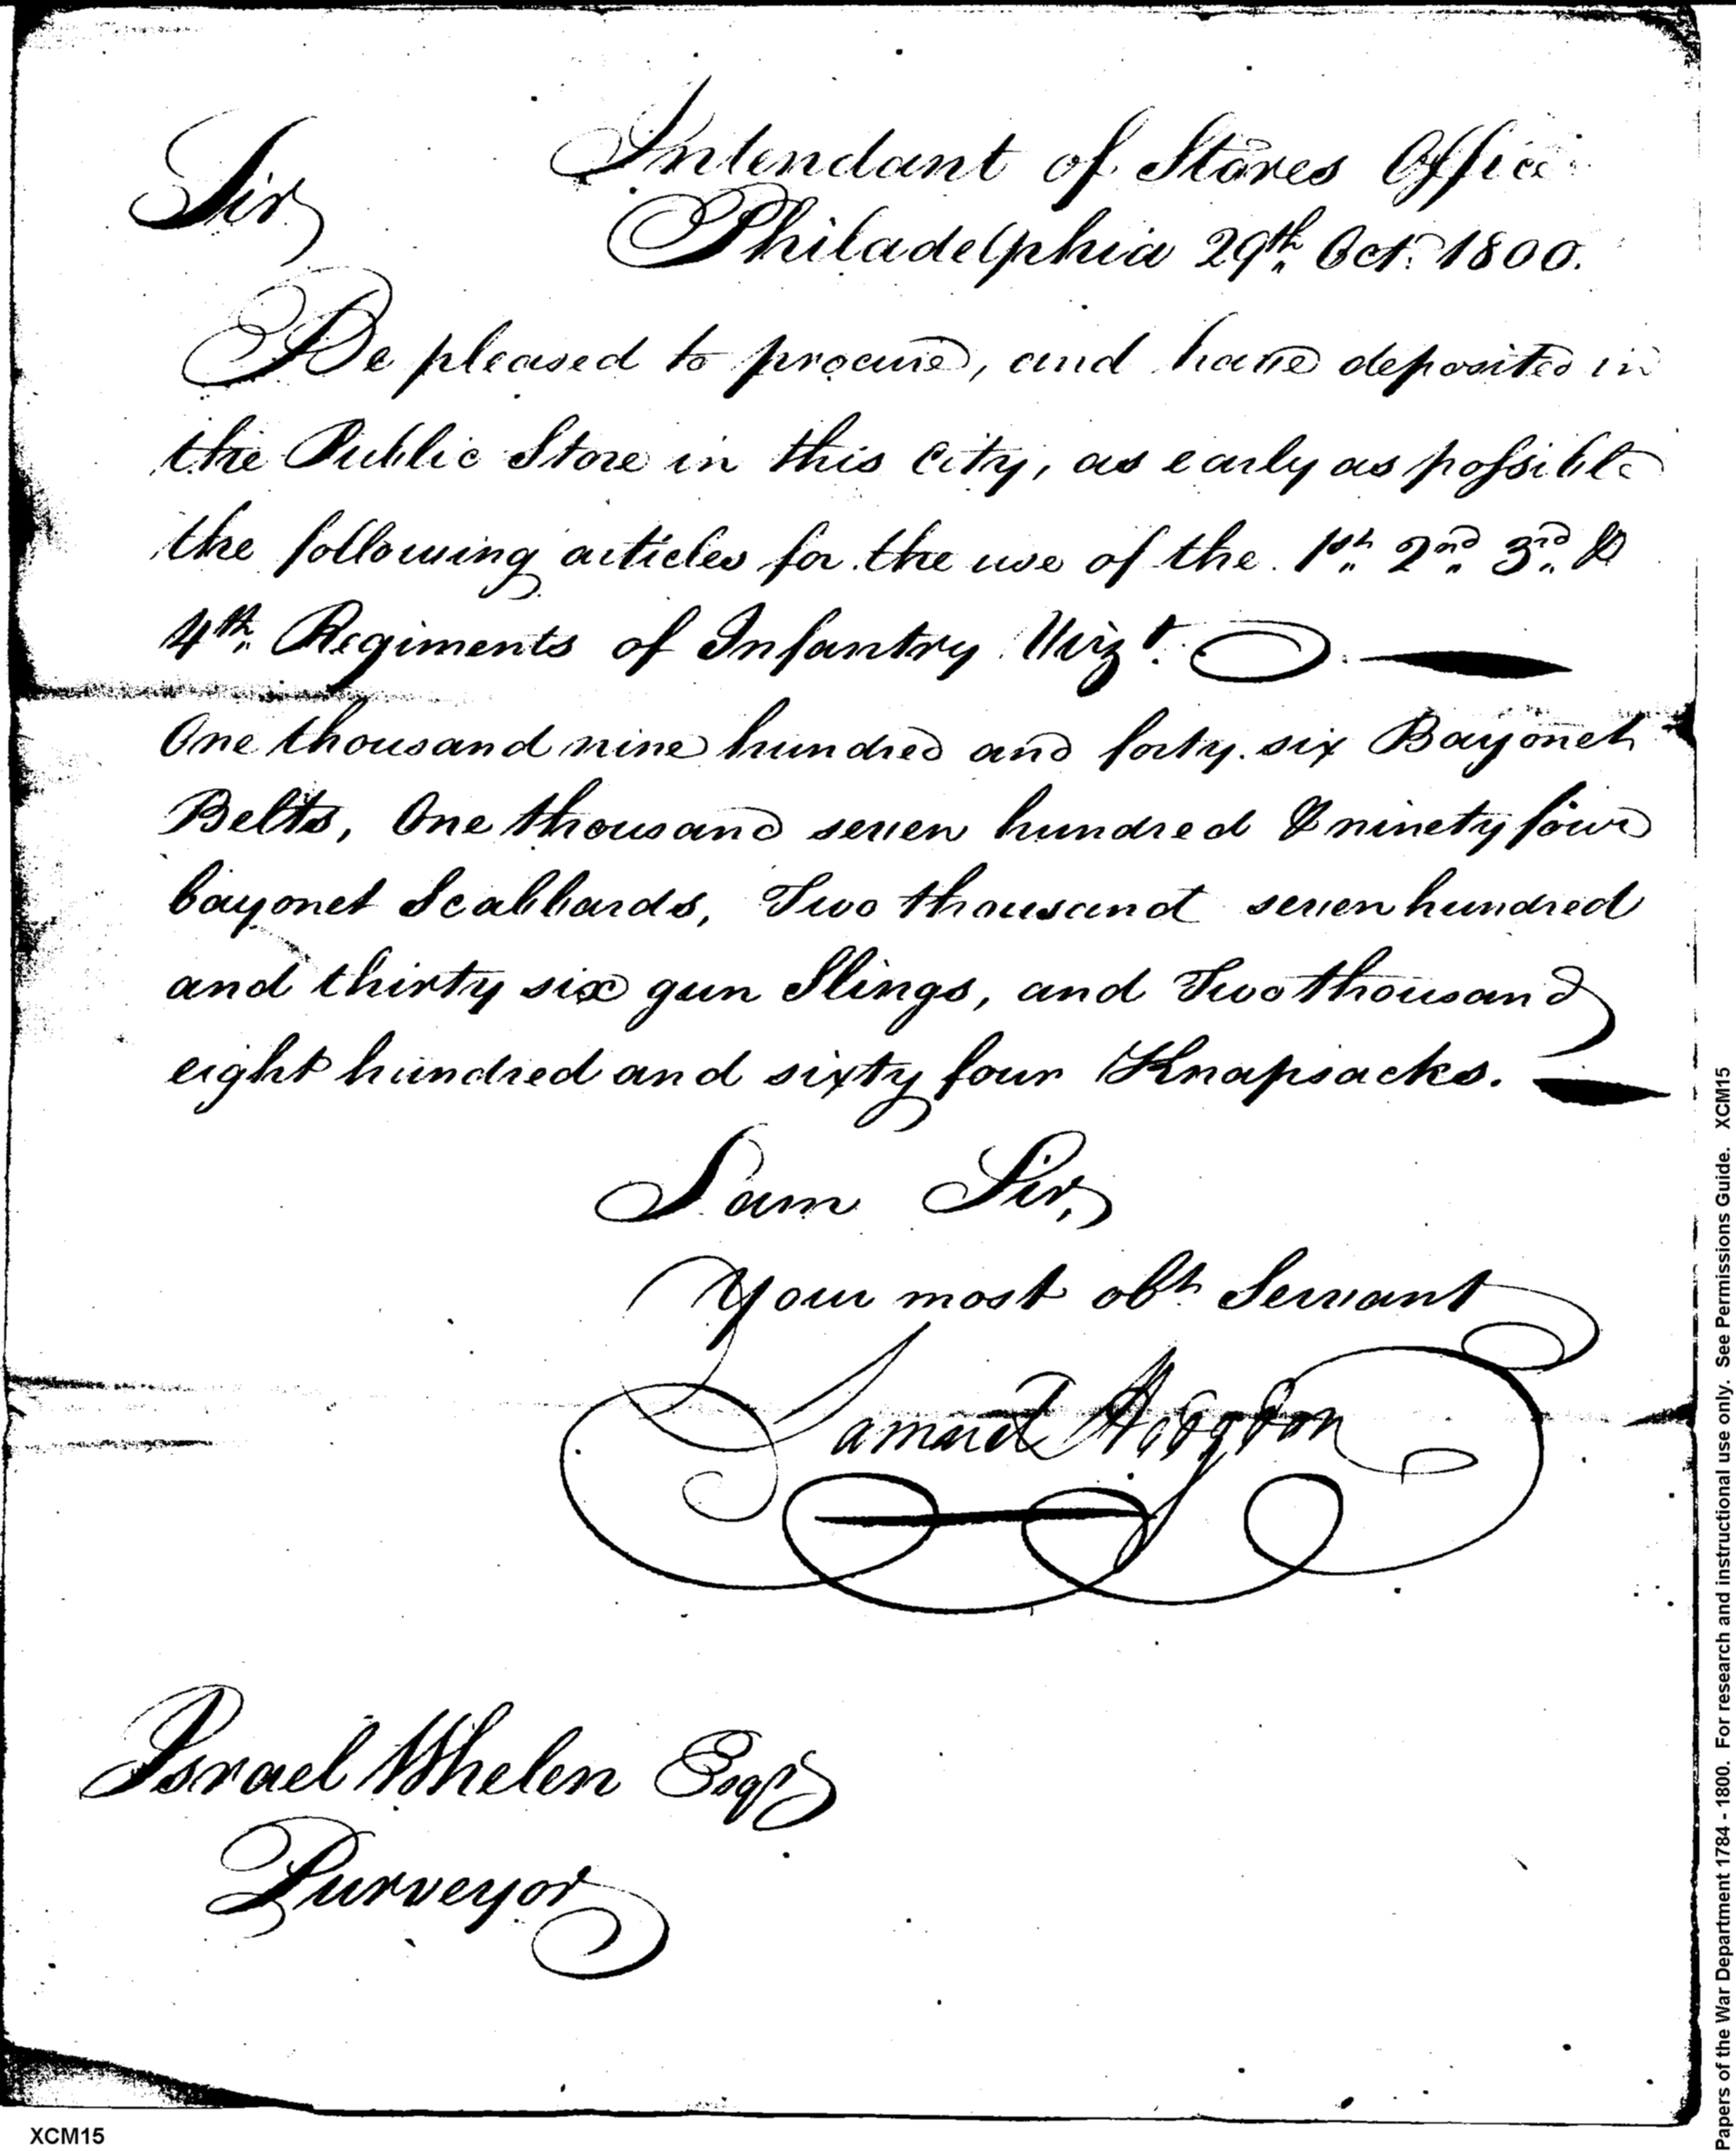 Intendant of Stores Office
Sir
Philadelphia 29th Oct. 1800.
Be pleased to procure, and have deposited in
the Public Store in this City, as early as possible
the following articles for the use of the 1st 2nd 3rd &
4th Regiments of Infantry Vizt.
One thousand nine hundred and forty six Bayonet
Belts, One thousand seven hundred & ninety four
bayonet Scabbards, Two thousand seven hundred
and thirty six gun Slings, and Two thousand
eight hundred and sixty four Knapsacks.
I am Sir,
Your most obt Servant
Samuel Hodgdon
Israel Whelen Esqr
Purveyor
XCM15
Papers of the War Department 1784 - 1800. For research and instructional use only. See Permissions Guide. XCM15